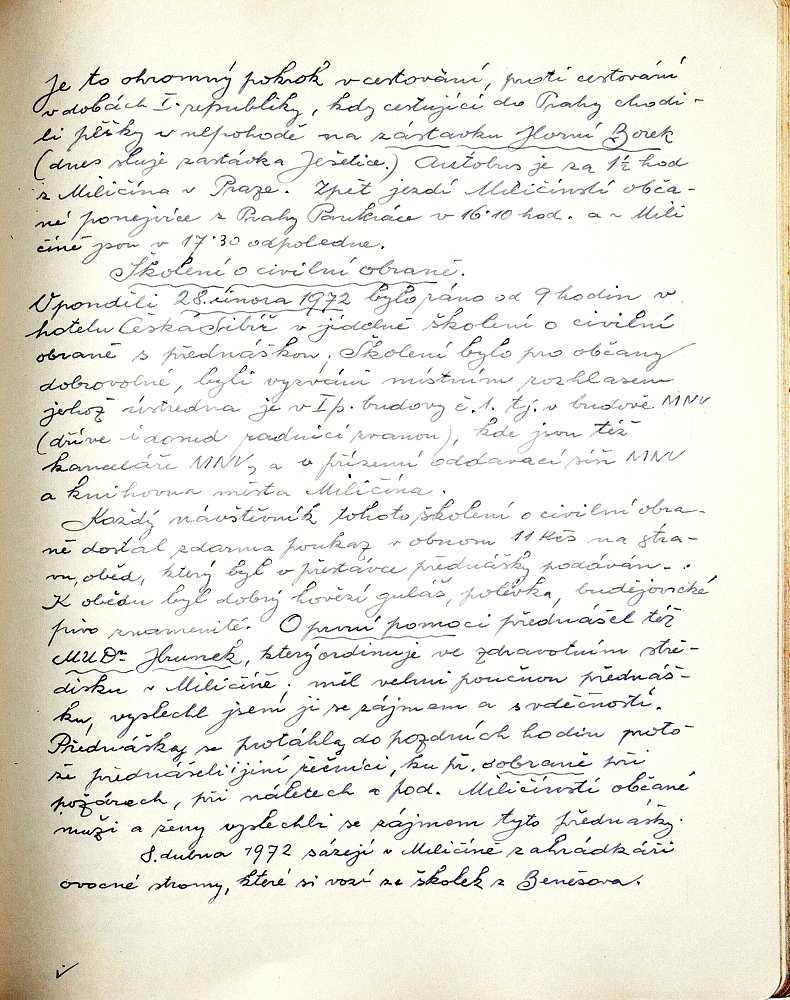 Je to ohromný pokrok v cestování, proti cestování
v dobách I. republiky, kdy cestující do Prahy chodi-
li pěšky v nepohodě na zástavku Horní Borek
(dnes sluje zastávka Ješetice.) Autobus je za 1½ hod
z Miličína v Praze. Zpět jezdí Miličínští obča-
né ponejvíce z Prahy Pankráce v 16·10 hod. a v Mili
číně jsou v 17·30 odpoledne.
Školení o civilní obraně.
V pondělí 28. února 1972 bylo ráno od 9 hodin v
hotelu Česká Sibiř v jídelně školení o civilní
obraně s přednáškou. Školení bylo pro občany
dobrovolné, byli vyzváni místním rozhlasem
jehož ústředna je v I p. budovy č. 1. tj. v budově MNV
(dříve i dosud radnicí zvanou), kde jsou též
kanceláře MNV, a v přízemí oddavací síň MNV
a knihovna města Miličína.
Každý návštěvník tohoto školení o civilní obra-
ně dostal zdarma poukaz v obnosu 11 Kčs na stra-
vu, oběd, který byl v přestávce přednášky podáván-.
K obědu byl dobrý hovězí guláš, polévka, budějovické
pivo znamenité. O první pomoci přednášel též
MUDr Hrunek, který ordinuje ve zdravotním stře-
disku v Miličíně. měl velmi poučnou přednáš-
ku, vyslechl jsem ji se zájmem a s vděčností.
Přednášky se protáhly do pozdních hodin proto-
že přednášeli i jiní řečníci, ku př. o obraně při
požárech, při náletech a pod. Miličínští občané
muži a ženy vyslechli se zájmem tyto přednášky.
8. dubna 1972 sázejí v Miličíně zahrádkáři
ovocné stromy, které si vozí ze školek z Benešova.